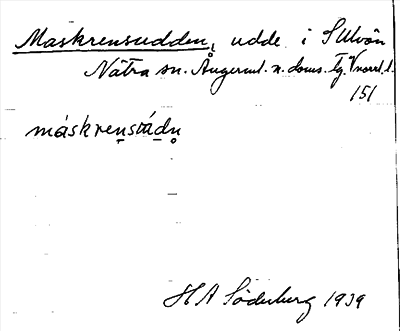 Maskrensudden, udde i S Ulvön
Nätra sn. Ångerml. n. doms. tg. V norrl. l.
151
máskrenstádn
H A Söderberg 1939